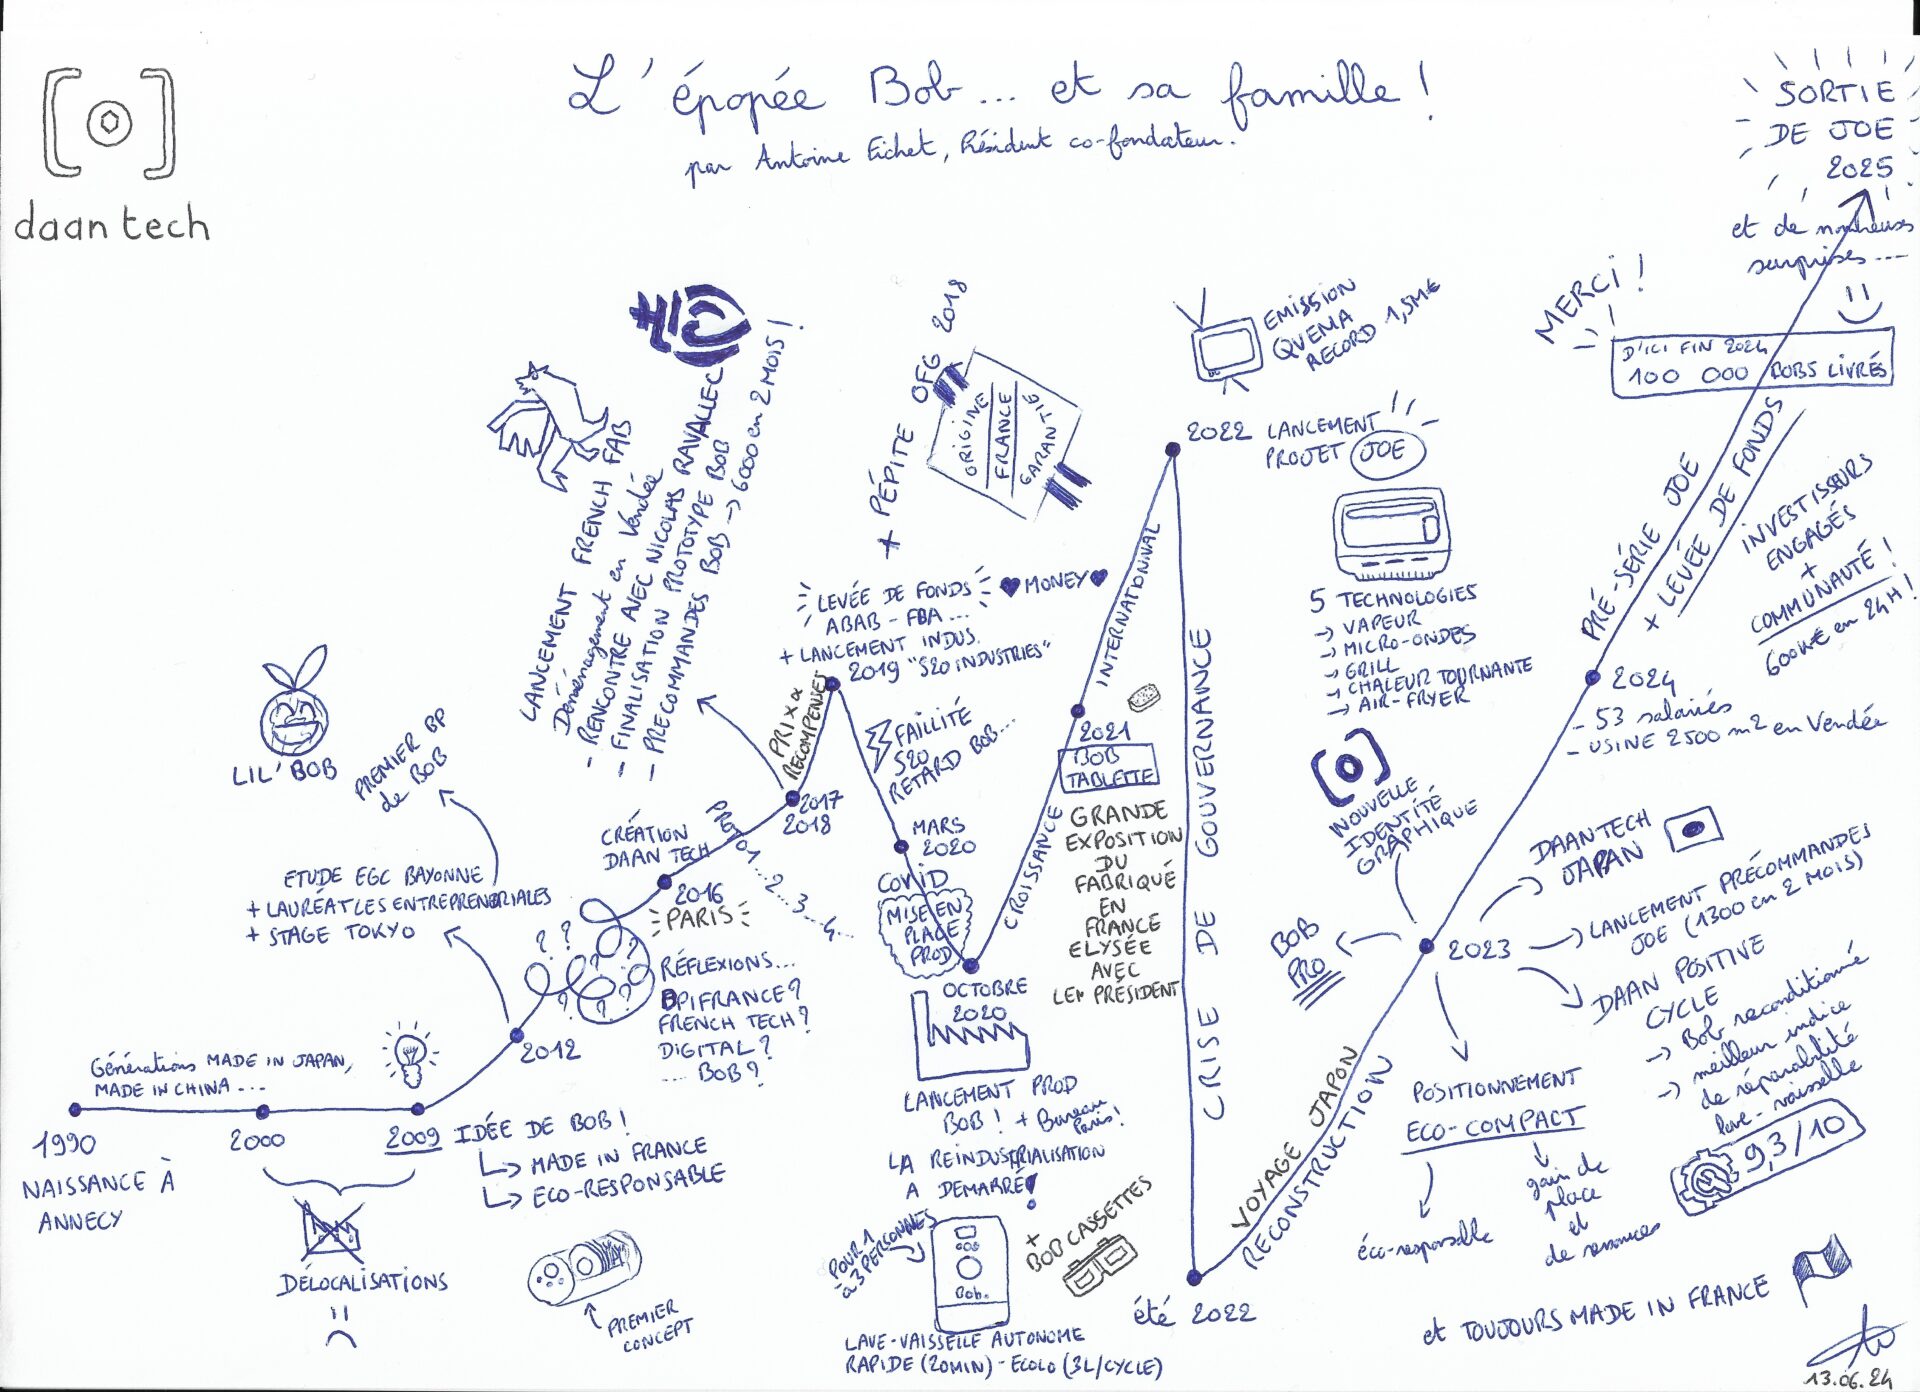 daan tech
L'épopée Bob... et sa famille !
par Antoine Fichet, Président co-fondateur.
1990
NAISSANCE À
ANNECY
Générations MADE IN JAPAN,
MADE IN CHINA...
2000
2009
DÉLOCALISATIONS
IDÉE DE BOB !
MADE IN FRANCE
ECO-RESPONSABLE
PREMIER
CONCEPT
2012
ETUDE EGC BAYONNE
+ LAURÉAT LES ENTREPRENORIALES
+ STAGE TOKYO
PREMIER BP
de BOB
LIL'BOB
? ? ? ? ? ?
RÉFLEXIONS...
BPIFRANCE ?
FRENCH TECH ?
DIGITAL ?
.... BOB ?
CRÉATION
DAAN TECH
2016
PARIS
PROTO 1...2...3...4...
2017
2018
LANCEMENT FRENCH FAB
Déménagement en Vendée
- RENCONTRE AVEC NICOLAS RAVALLEC
- FINALISATION PROTOTYPE BOB
- PRECOMMANDES BOB → 6000 en 2 MOIS !
PRIX &
RECOMPENSES
+ PÉPITE OFG 2018
ORIGINE
FRANCE
GARANTIE
LEVÉE DE FONDS
♥ MONEY ♥
ABAB - FBA ...
+ LANCEMENT INDUS.
2019 "S20 INDUSTRIES"
FAILLITE
S20
RETARD BOB...
MARS
2020
COVID
MISE EN
PLACE
PROD
OCTOBRE
2020
LANCEMENT PROD
BOB ! + Bureau
Paris !
LA REINDUSTRIALISATION
A DEMARRÉ !
POUR 1
à 3 PERSONNES
Bob.
+
BOB CASSETTES
LAVE-VAISSELLE AUTONOME
RAPIDE (20MIN) - ECOLO (3L/CYCLE)
CROISSANCE
2021
BOB
TABLETTE
GRANDE
EXPOSITION
DU
FABRIQUÉ
EN
FRANCE
ELYSÉE
AVEC
LE PRÉSIDENT
INTERNATIONNAL
EMISSION
QVEMA
RECORD 1,5M€
2022 LANCEMENT
PROJET JOE
5 TECHNOLOGIES
→ VAPEUR
→ MICRO-ONDES
→ GRILL
→ CHALEUR TOURNANTE
→ AIR-FRYER
CRISE DE GOUVERNANCE
été 2022
VOYAGE JAPON
RECONSTRUCTION
2023
BOB
PRO
NOUVELLE
IDENTITÉ
GRAPHIQUE
DAAN TECH
JAPAN
LANCEMENT PRÉCOMMANDES
JOE (1300 en 2 MOIS)
DAAN POSITIVE
CYCLE
→ Bob reconditionné
→ meilleur indice
de réparabilité
lave-vaisselle
9,3/10
POSITIONNEMENT
ECO-COMPACT
éco-responsable
gain de
place
et
de ressources
2024
- 53 salariés
- USINE 2500 m2 en Vendée
PRÉ-SÉRIE JOE
+ LEVÉE DE FONDS
INVESTISSEURS
ENGAGÉS
+
COMMUNAUTÉ !
600K€ en 24H !
MERCI !
D'ICI FIN 2024
100 000 BOBS LIVRÉS
SORTIE
DE JOE
2025
et de nombreuses
surprises....
et TOUJOURS MADE IN FRANCE
13.06.24